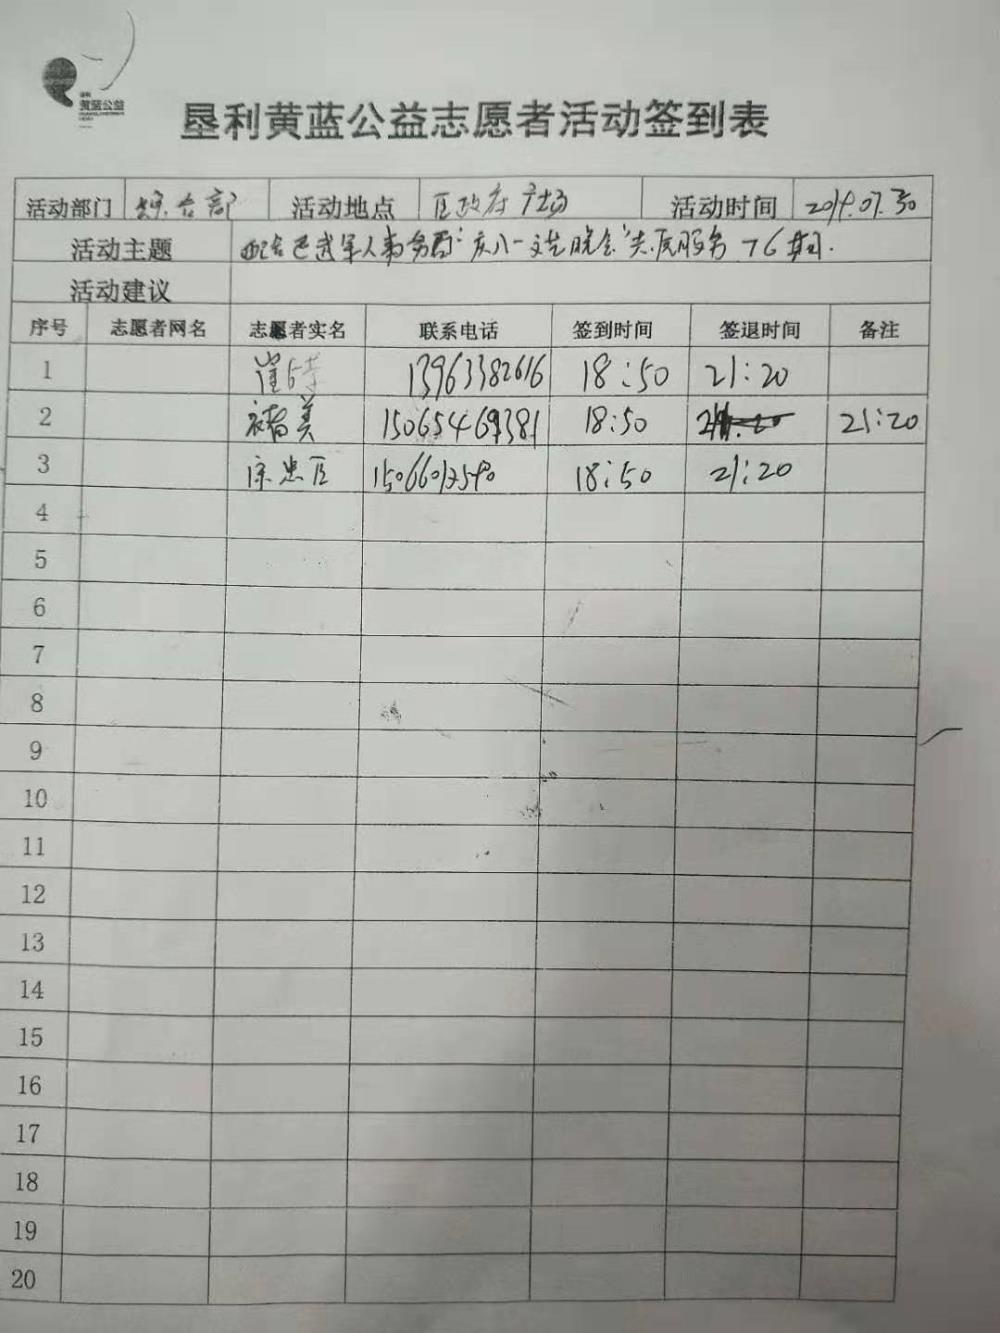 黄蓝公益
垦利黄蓝公益志愿者活动签到表
活动部门 综合部 活动地点 区政府广场 活动时间 2019.07.30
活动主题 配合 军人事务局"庆八一文艺晚会"志愿服务 76期.
活动建议
序号 志愿者网名 志愿者实名 联系电话 签到时间 签退时间 备注
1 崔 13963382616 18:50 21:20
2 褚美 15065469381 18:50 21:20
3 徐忠臣 18:50 21:20
4
5
6
7
8
9
10
11
12
13
14
15
16
17
18
19
20